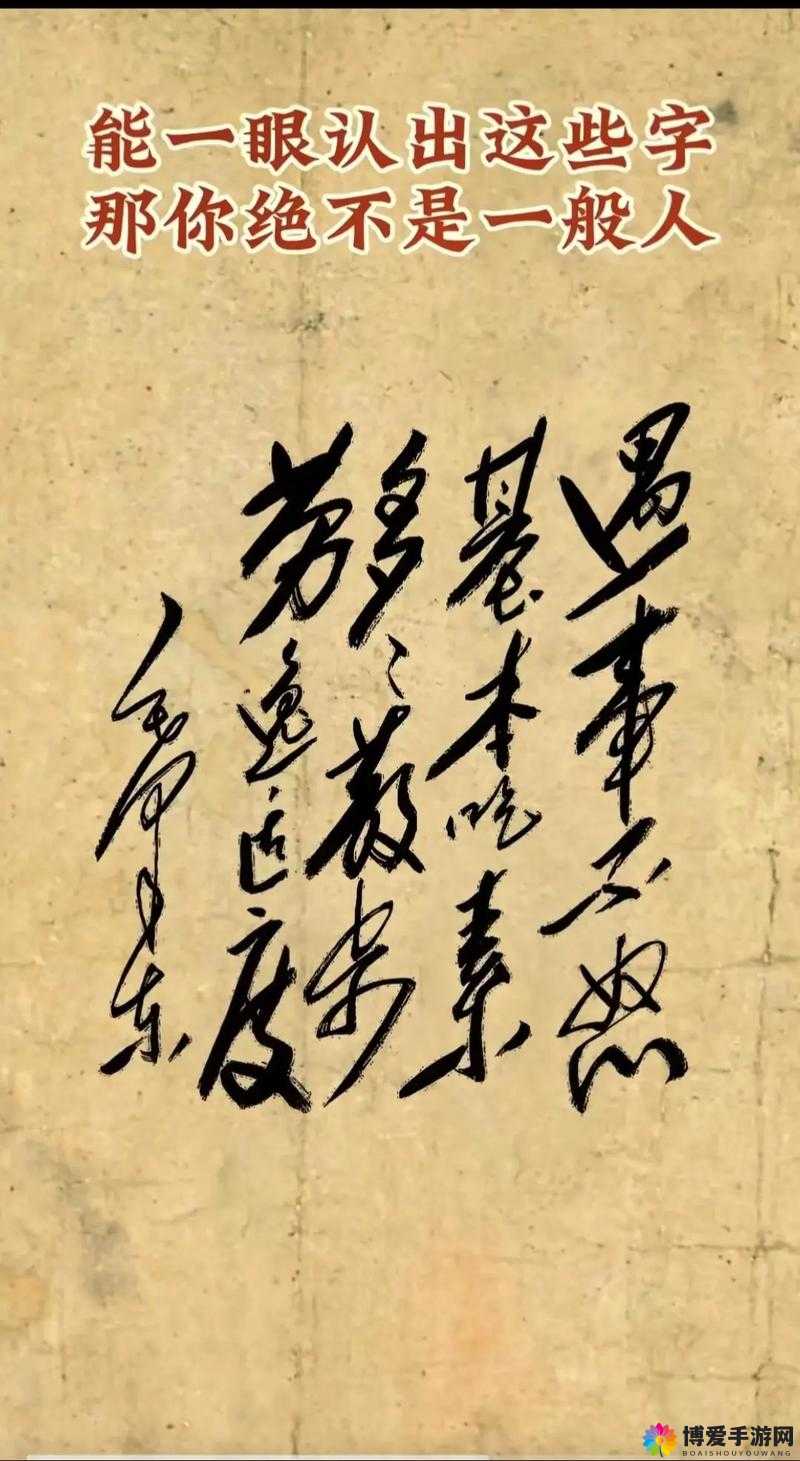 能一眼认出这些字
那你绝不是一般人
遇事不怒
基本吃素
多多散步
劳逸适度
毛泽东
博爱手游网
BOAISHOUYOUWANG